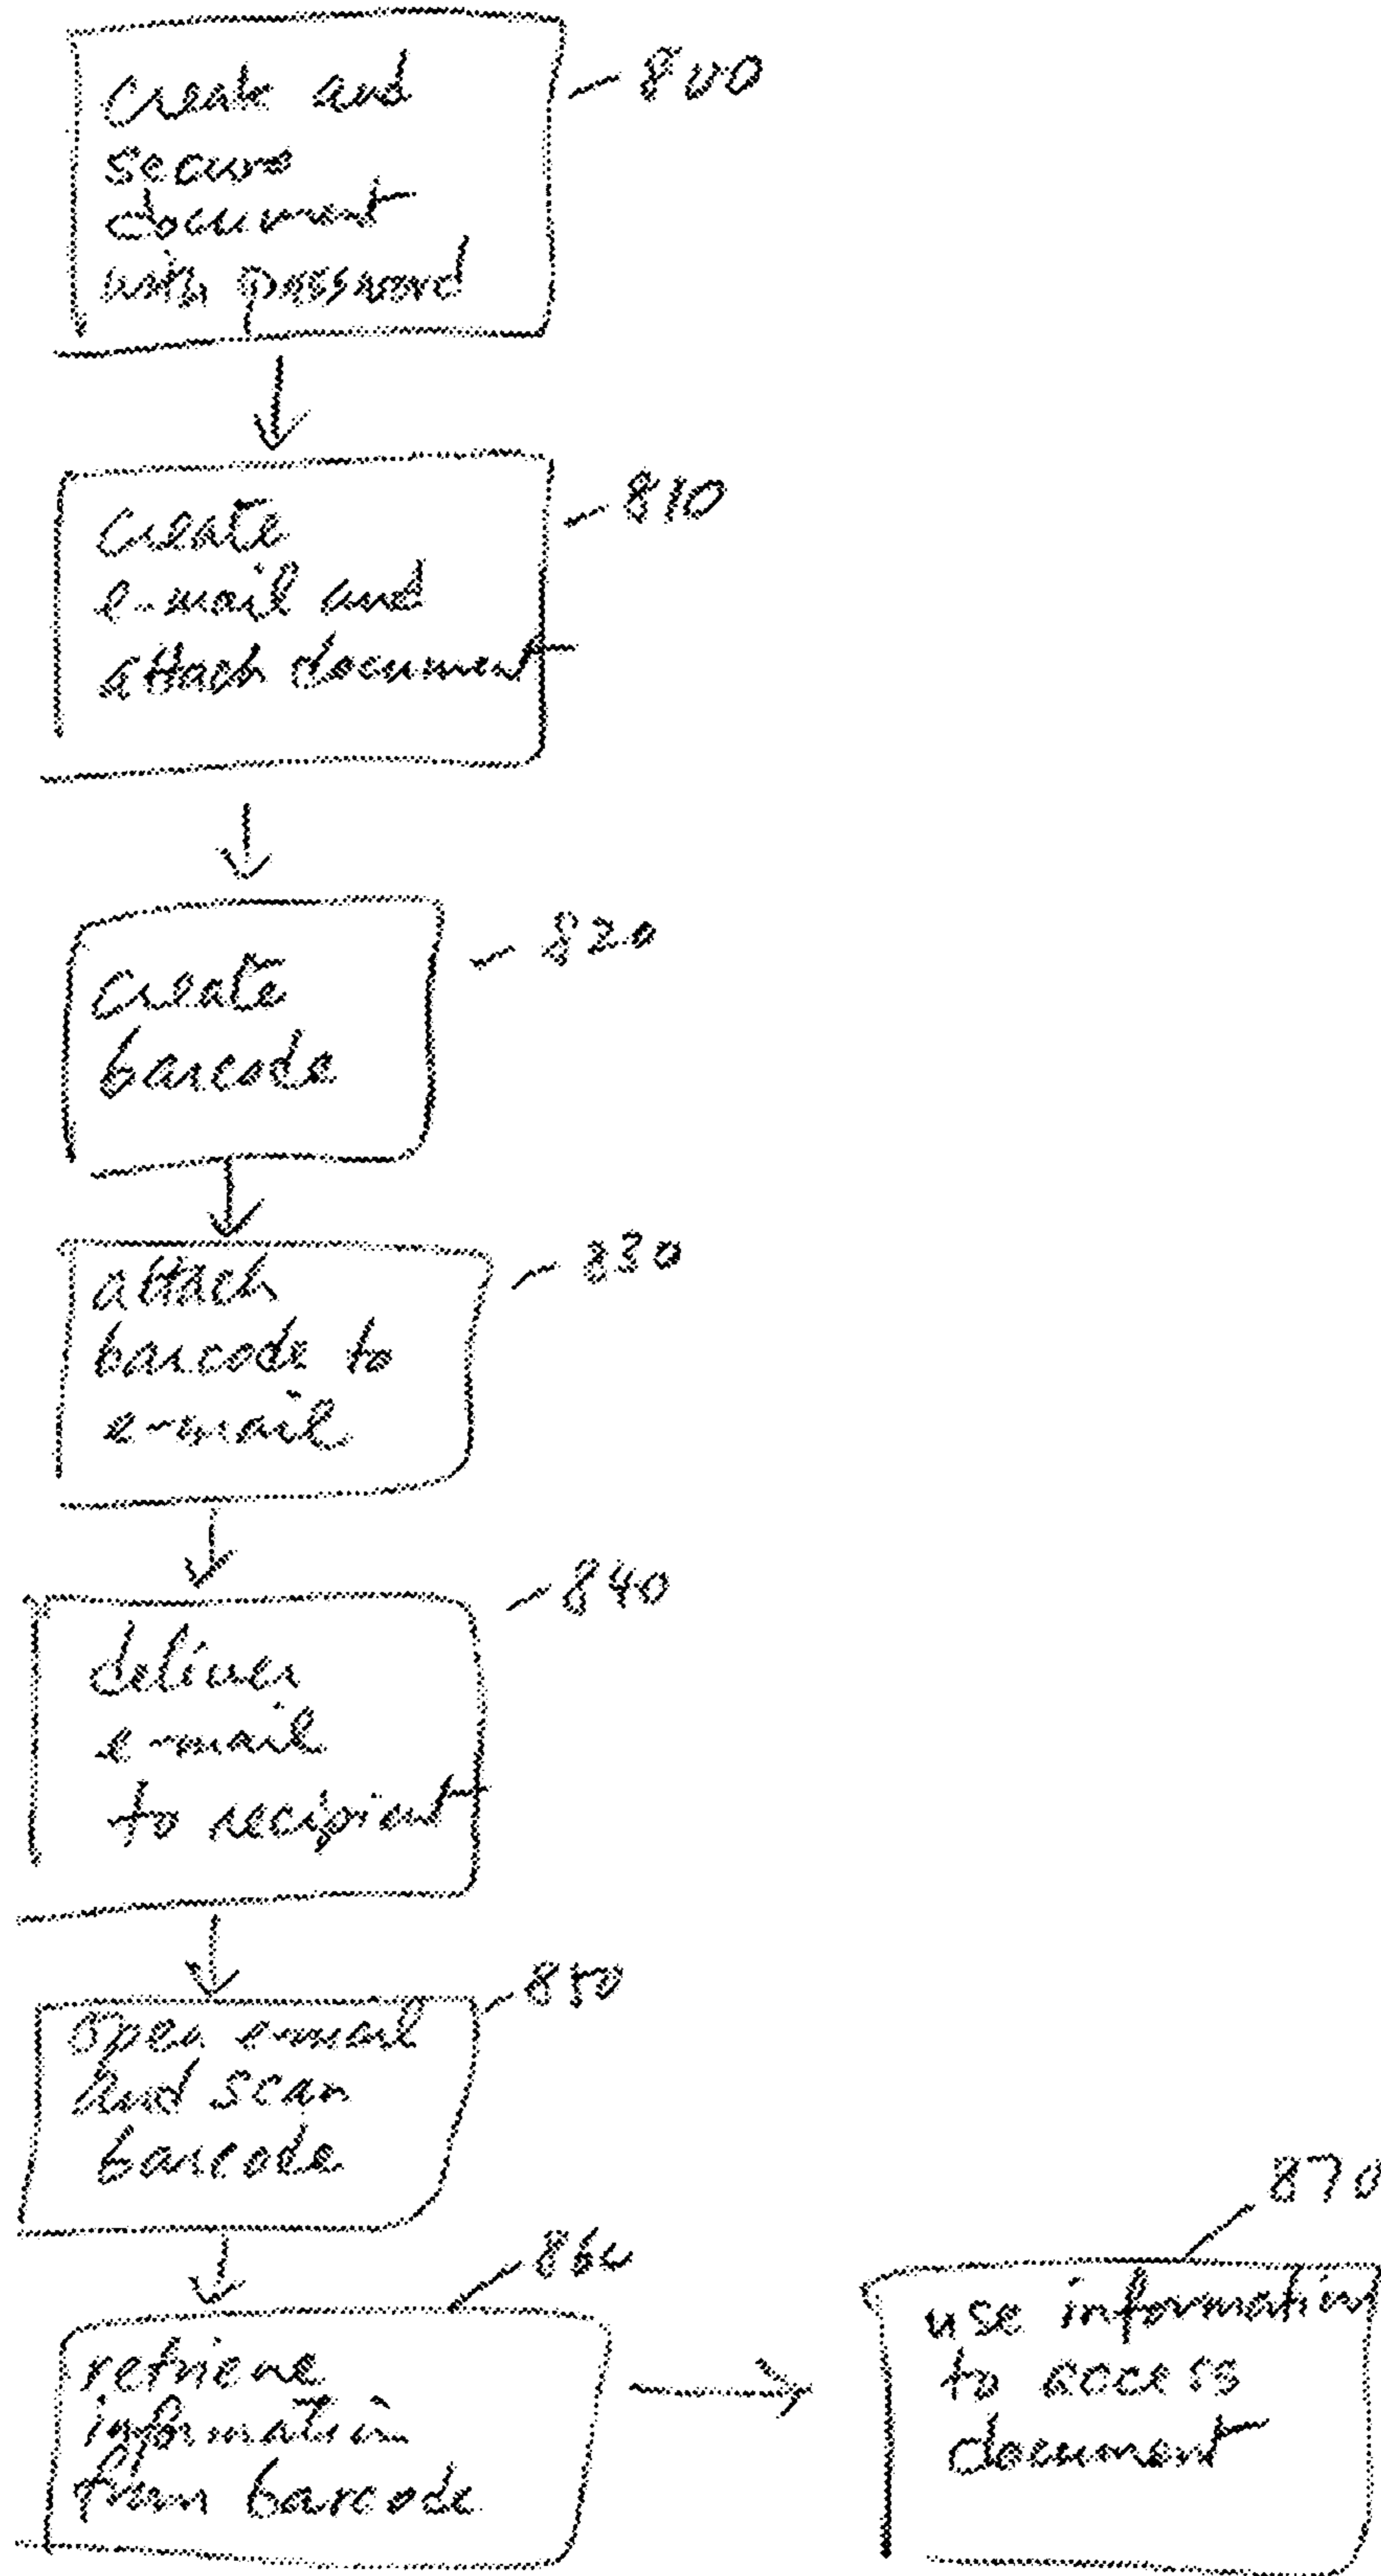 create and
secure
document
with password
800
create
e-mail and
attach document
810
create
barcode
820
attach
barcode to
e-mail
830
deliver
e-mail
to recipient
840
open e-mail
and scan
barcode
850
retrieve
information
from barcode
860
use information
to access
document
870